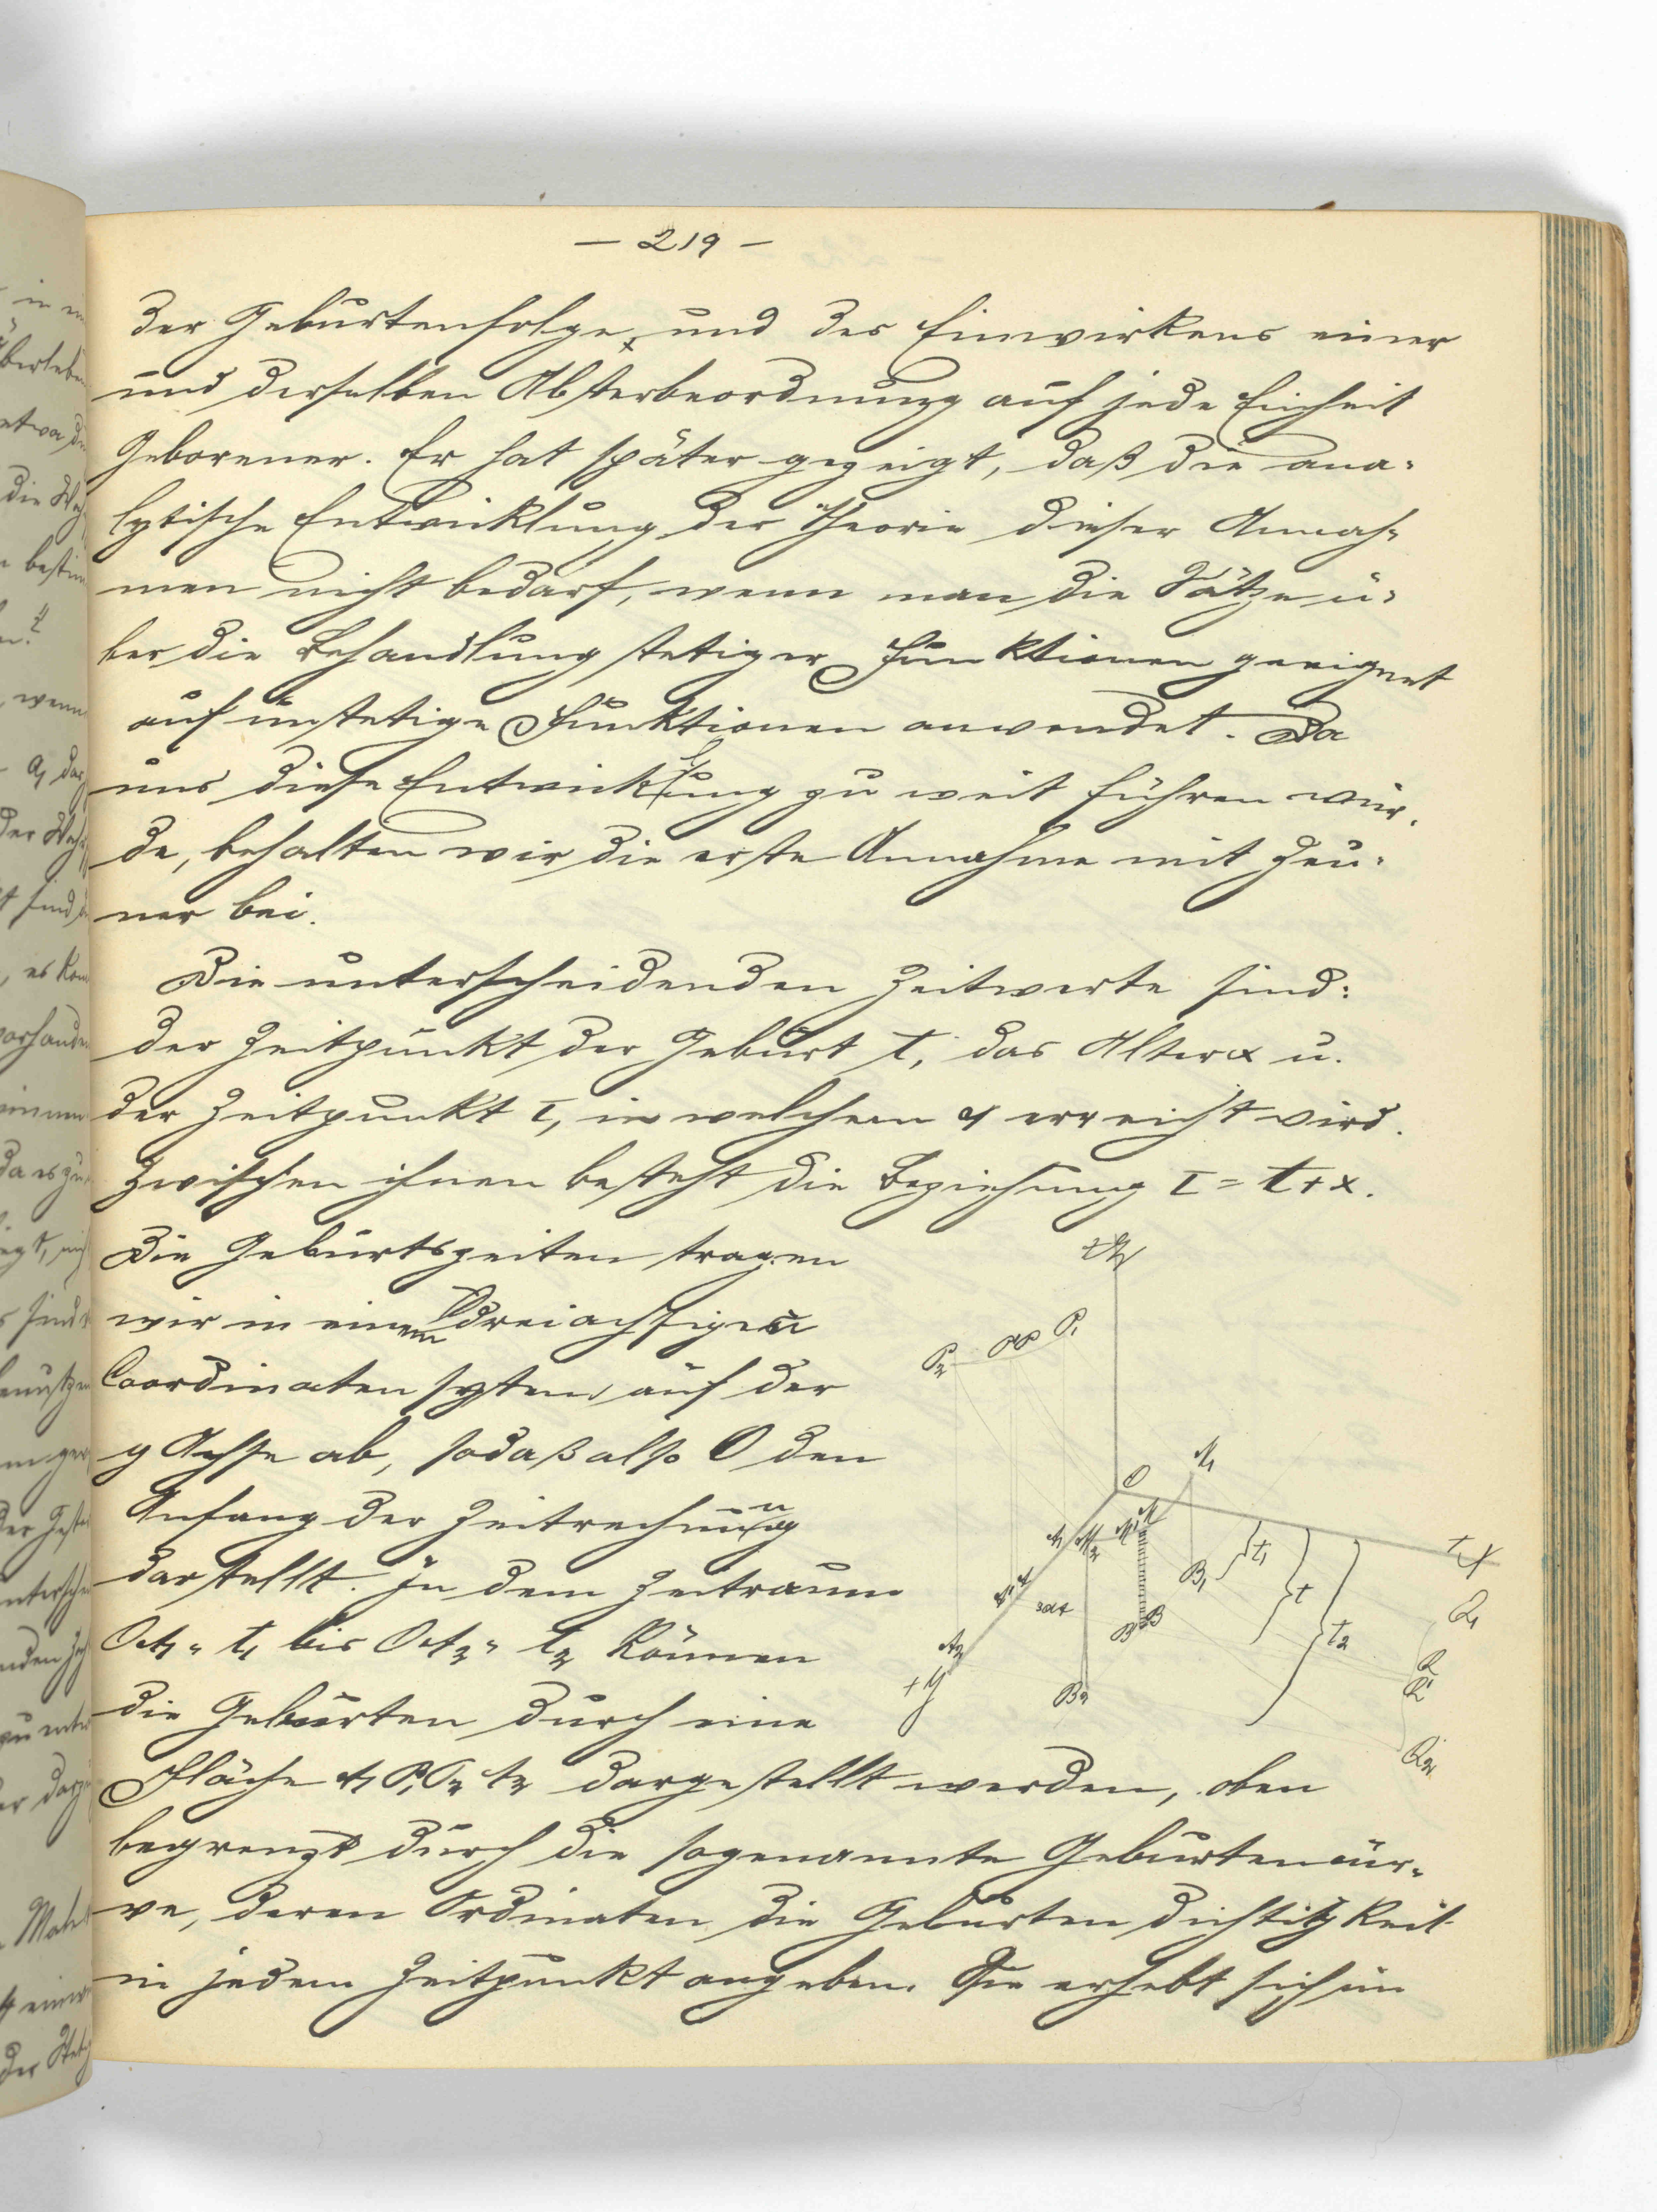 — 219 —
der Geburtenfolge, und des Einwirkens einer
und derselben Absterbeordnung auf jede Einheit
Geborener. Er hat später gezeigt, daß die ana-
lytische Entwicklung der Theorie dieser Annah-
men nicht bedarf, wenn man die Sätze ü-
ber die Behandlung stetiger Funktionen geeignet
auf unstetige Funktionen anwendet. Da
uns diese Entwicklung zu weit führen wür-
de, behalten wir die erste Annahme mit Zeu-
ner bei.
Die unterscheidenden Zeitwerte sind:
der Zeitpunkt der Geburt t, das Alter x u.
der Zeitpunkt τ, in welchem x erreicht wird.
Zwischen ihnen besteht die Beziehung τ = t + x.
Die Geburtszeiten tragen
wir in einem dreiachsigen
Coordinatensystem auf der
y Achse ab, sodaß also O den
Anfang der Zeitrechnung
darstellt. In dem Zeitraum
OA1 = t1 bis OA2 = t2 können
die Geburten durch eine
Fläche A1 P1 P2 A2 dargestellt werden, oben
begrenzt durch die sogenannte Geburtencur-
ve, deren Ordinaten die Geburtendichtigkeit
in jedem Zeitpunkt angeben. Sie erhebt sich im
+Z
P2
P1
O
M1
A1
M2
M' M
+X
B1
t1
t
t2
A2
+Y
B' B
B2
Q1
Q
Q'
Q2